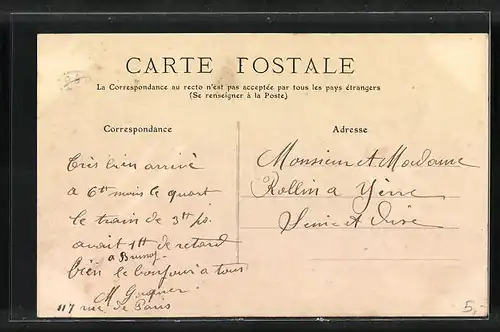 CARTE POSTALE
La Correspondance au recto n'est pas acceptée par tous les pays étrangers
(Se renseigner à la Poste)
Correspondance
Adresse
très bien arrivé
a 6h moins le quart
le train de 3h
avait 1h de retard
a Brunoy
bien le bonjour a tous
M
117 rue de Paris
Monsieur et Madame
Rollin a Yerre
Seine et Oise
5,-